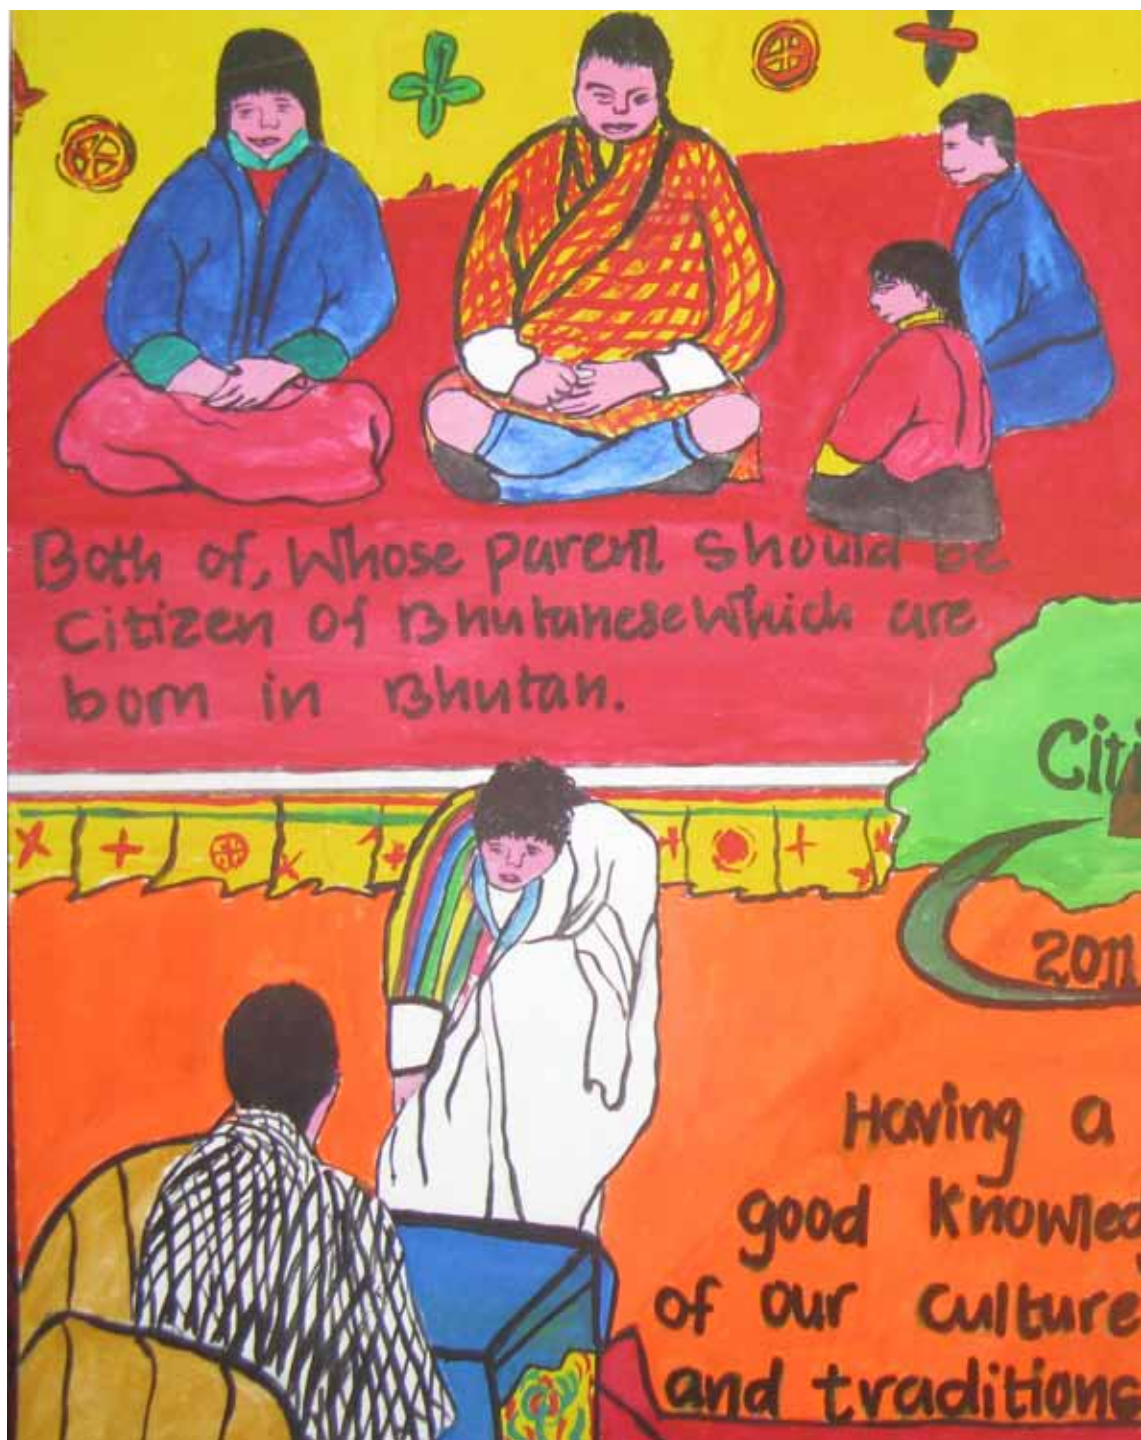 Both of, Whose parent should be
Citizen of Bhutanese which are
born in Bhutan.
Citi
2011
Having a
good Knowled
of our culture
and traditions